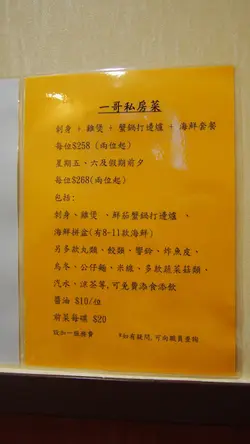 一哥私房菜
刺身 + 雞煲 + 蟹鍋打邊爐 + 海鮮套餐
每位$258 (兩位起)
星期五、六及假期前夕
每位$268(兩位起)
包括:
刺身、雞煲、鮮茄蟹鍋打邊爐、
海鮮拼盆(有8-11款海鮮)
另多款丸類、餃類、響鈴、炸魚皮、
烏冬、公仔麵、米線、多款蔬菜菇類、
汽水、涼茶等,可免費添食添飲
醬油 $10/位
前菜每碟 $20
設加一服務費 *如有疑問,可向職員查詢